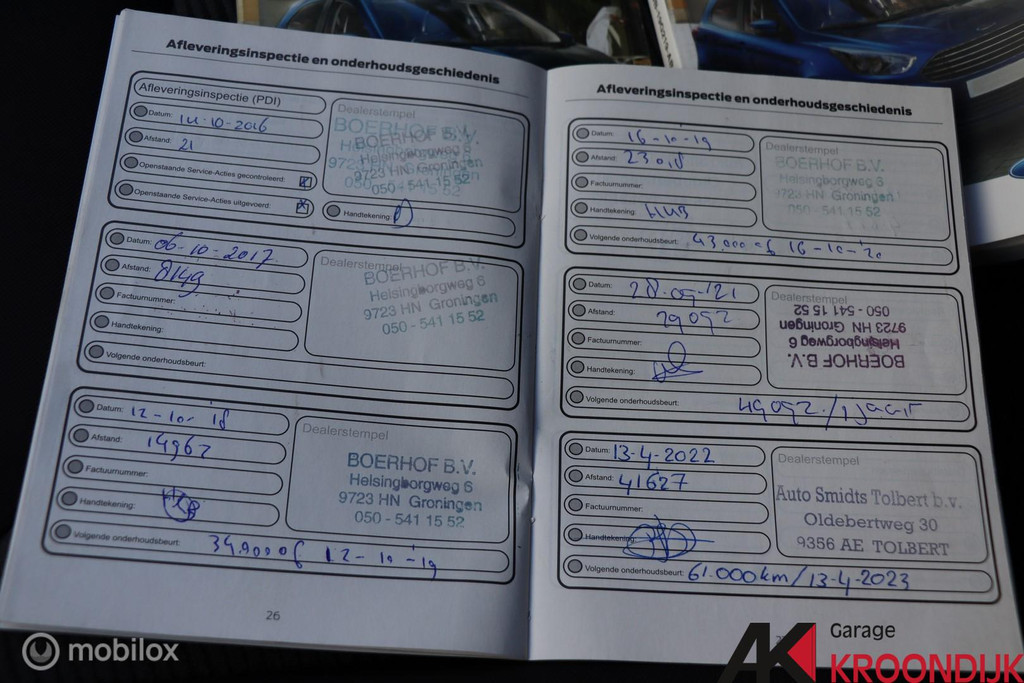 Afleveringsinspectie en onderhoudsgeschiedenis
Afleveringsinspectie (PDI)
Datum: 14-10-2016
Afstand: 21
Openstaande Service-Acties gecontroleerd:
Openstaande Service-Acties uitgevoerd:
Handtekening:
Dealerstempel
BOERHOF B.V.
Helsingborgweg 6
9723 HN Groningen
050 - 541 15 52
Datum: 06-10-2017
Afstand: 8149
Factuurnummer:
Handtekening:
Volgende onderhoudsbeurt:
Dealerstempel
BOERHOF B.V.
Helsingborgweg 6
9723 HN Groningen
050 - 541 15 52
Datum: 12-10-18
Afstand: 14962
Factuurnummer:
Handtekening:
Volgende onderhoudsbeurt: 34.9000f 12-10-19
Dealerstempel
BOERHOF B.V.
Helsingborgweg 6
9723 HN Groningen
050 - 541 15 52
26
Afleveringsinspectie en onderhoudsgeschiedenis
Datum: 16-10-19
Afstand: 23018
Factuurnummer:
Handtekening:
Volgende onderhoudsbeurt: 43.000 of 16-10-20
Dealerstempel
BOERHOF B.V.
Helsingborgweg 6
9723 HN Groningen
050 - 541 15 52
Datum: 28-09-'21
Afstand: 29092
Factuurnummer:
Handtekening:
Volgende onderhoudsbeurt: 49092./1 jaar
Dealerstempel
BOERHOF B.V.
Helsingborgweg 6
9723 HN Groningen
050 - 541 15 52
Datum: 13-4-2022
Afstand: 41627
Factuurnummer:
Handtekening:
Volgende onderhoudsbeurt: 61.000km/13-4-2023
Dealerstempel
Auto Smidts Tolbert b.v.
Oldebertweg 30
9356 AE TOLBERT
mobilox
AK Garage
KROONDIJK